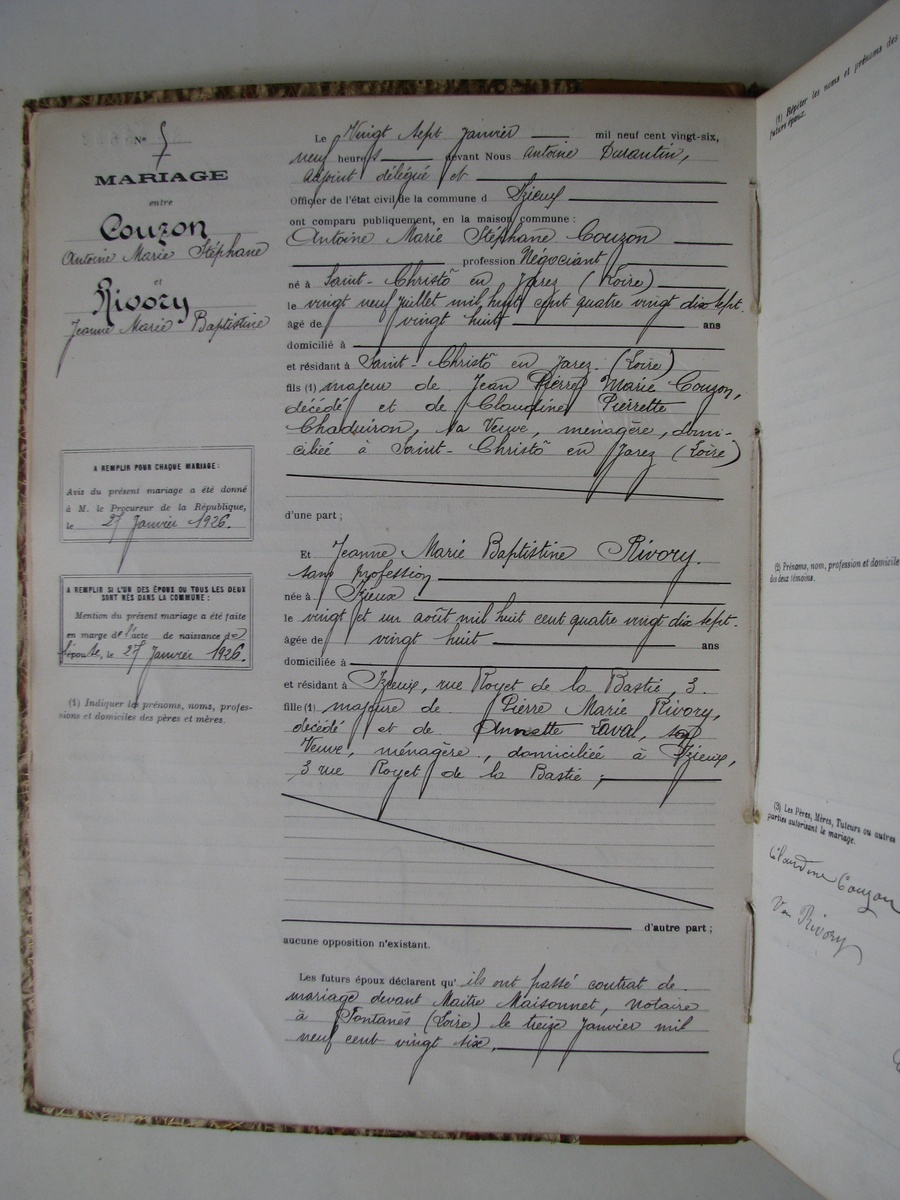 N° 5
MARIAGE
entre
Couzon
Antoine Marie Stéphane
et
Rivory
Jeanne Marie Baptistine
A REMPLIR POUR CHAQUE MARIAGE :
Avis du présent mariage a été donné
à M. le Procureur de la République,
le 27 Janvier 1926.
A REMPLIR SI L'UN DES ÉPOUX OU TOUS LES DEUX
SONT NÉS DANS LA COMMUNE :
Mention du présent mariage a été faite
en marge de l'acte de naissance de
l'épouse, le 27 Janvier 1926.
(1) Indiquer les prénoms, noms, profes-
sions et domiciles des pères et mères.
Le Vingt Sept Janvier mil neuf cent vingt-six,
neuf heures devant Nous Antoine Durantin,
adjoint délégué et
Officier de l'état civil de la commune d Izieux
ont comparu publiquement, en la maison commune :
Antoine Marie Stéphane Couzon
profession Négociant
né à Saint-Christô en Jarez (Loire)
le vingt neuf Juillet mil huit cent quatre vingt dix sept.
âgé de vingt huit ans
domicilié à
et résidant à Saint-Christô en Jarez (Loire)
fils (1) majeur de Jean Pierre Marie Couzon,
décédé et de Claudine Pierrette
Chaduiron, sa Veuve, ménagère, domi-
ciliée à Saint-Christô en Jarez (Loire)
d'une part ;
Et Jeanne Marie Baptistine Rivory.
sans profession
née à Izieux
le vingt et un août mil huit cent quatre vingt dix sept.
âgée de vingt huit ans
domiciliée à
et résidant à Izieux, rue Royet de la Bastie, 3.
fille (1) majeure de Pierre Marie Rivory,
décédé et de Annette Laval, sa
Veuve, ménagère, domiciliée à Izieux,
3 rue Royet de la Bastie ;
d'autre part ;
aucune opposition n'existant.
Les futurs époux déclarent qu'ils ont passé contrat de
mariage devant Maître Maisonnet, notaire
à Fontanès (Loire) le treize Janvier mil
neuf cent vingt six,
(1) Répéter les noms et prénoms des
futurs époux.
(2) Prénoms, nom, profession et domicile
des deux témoins.
(3) Les Pères, Mères, Tuteurs ou autres
parties autorisant le mariage.
Claudine Couzon
Ve Rivory